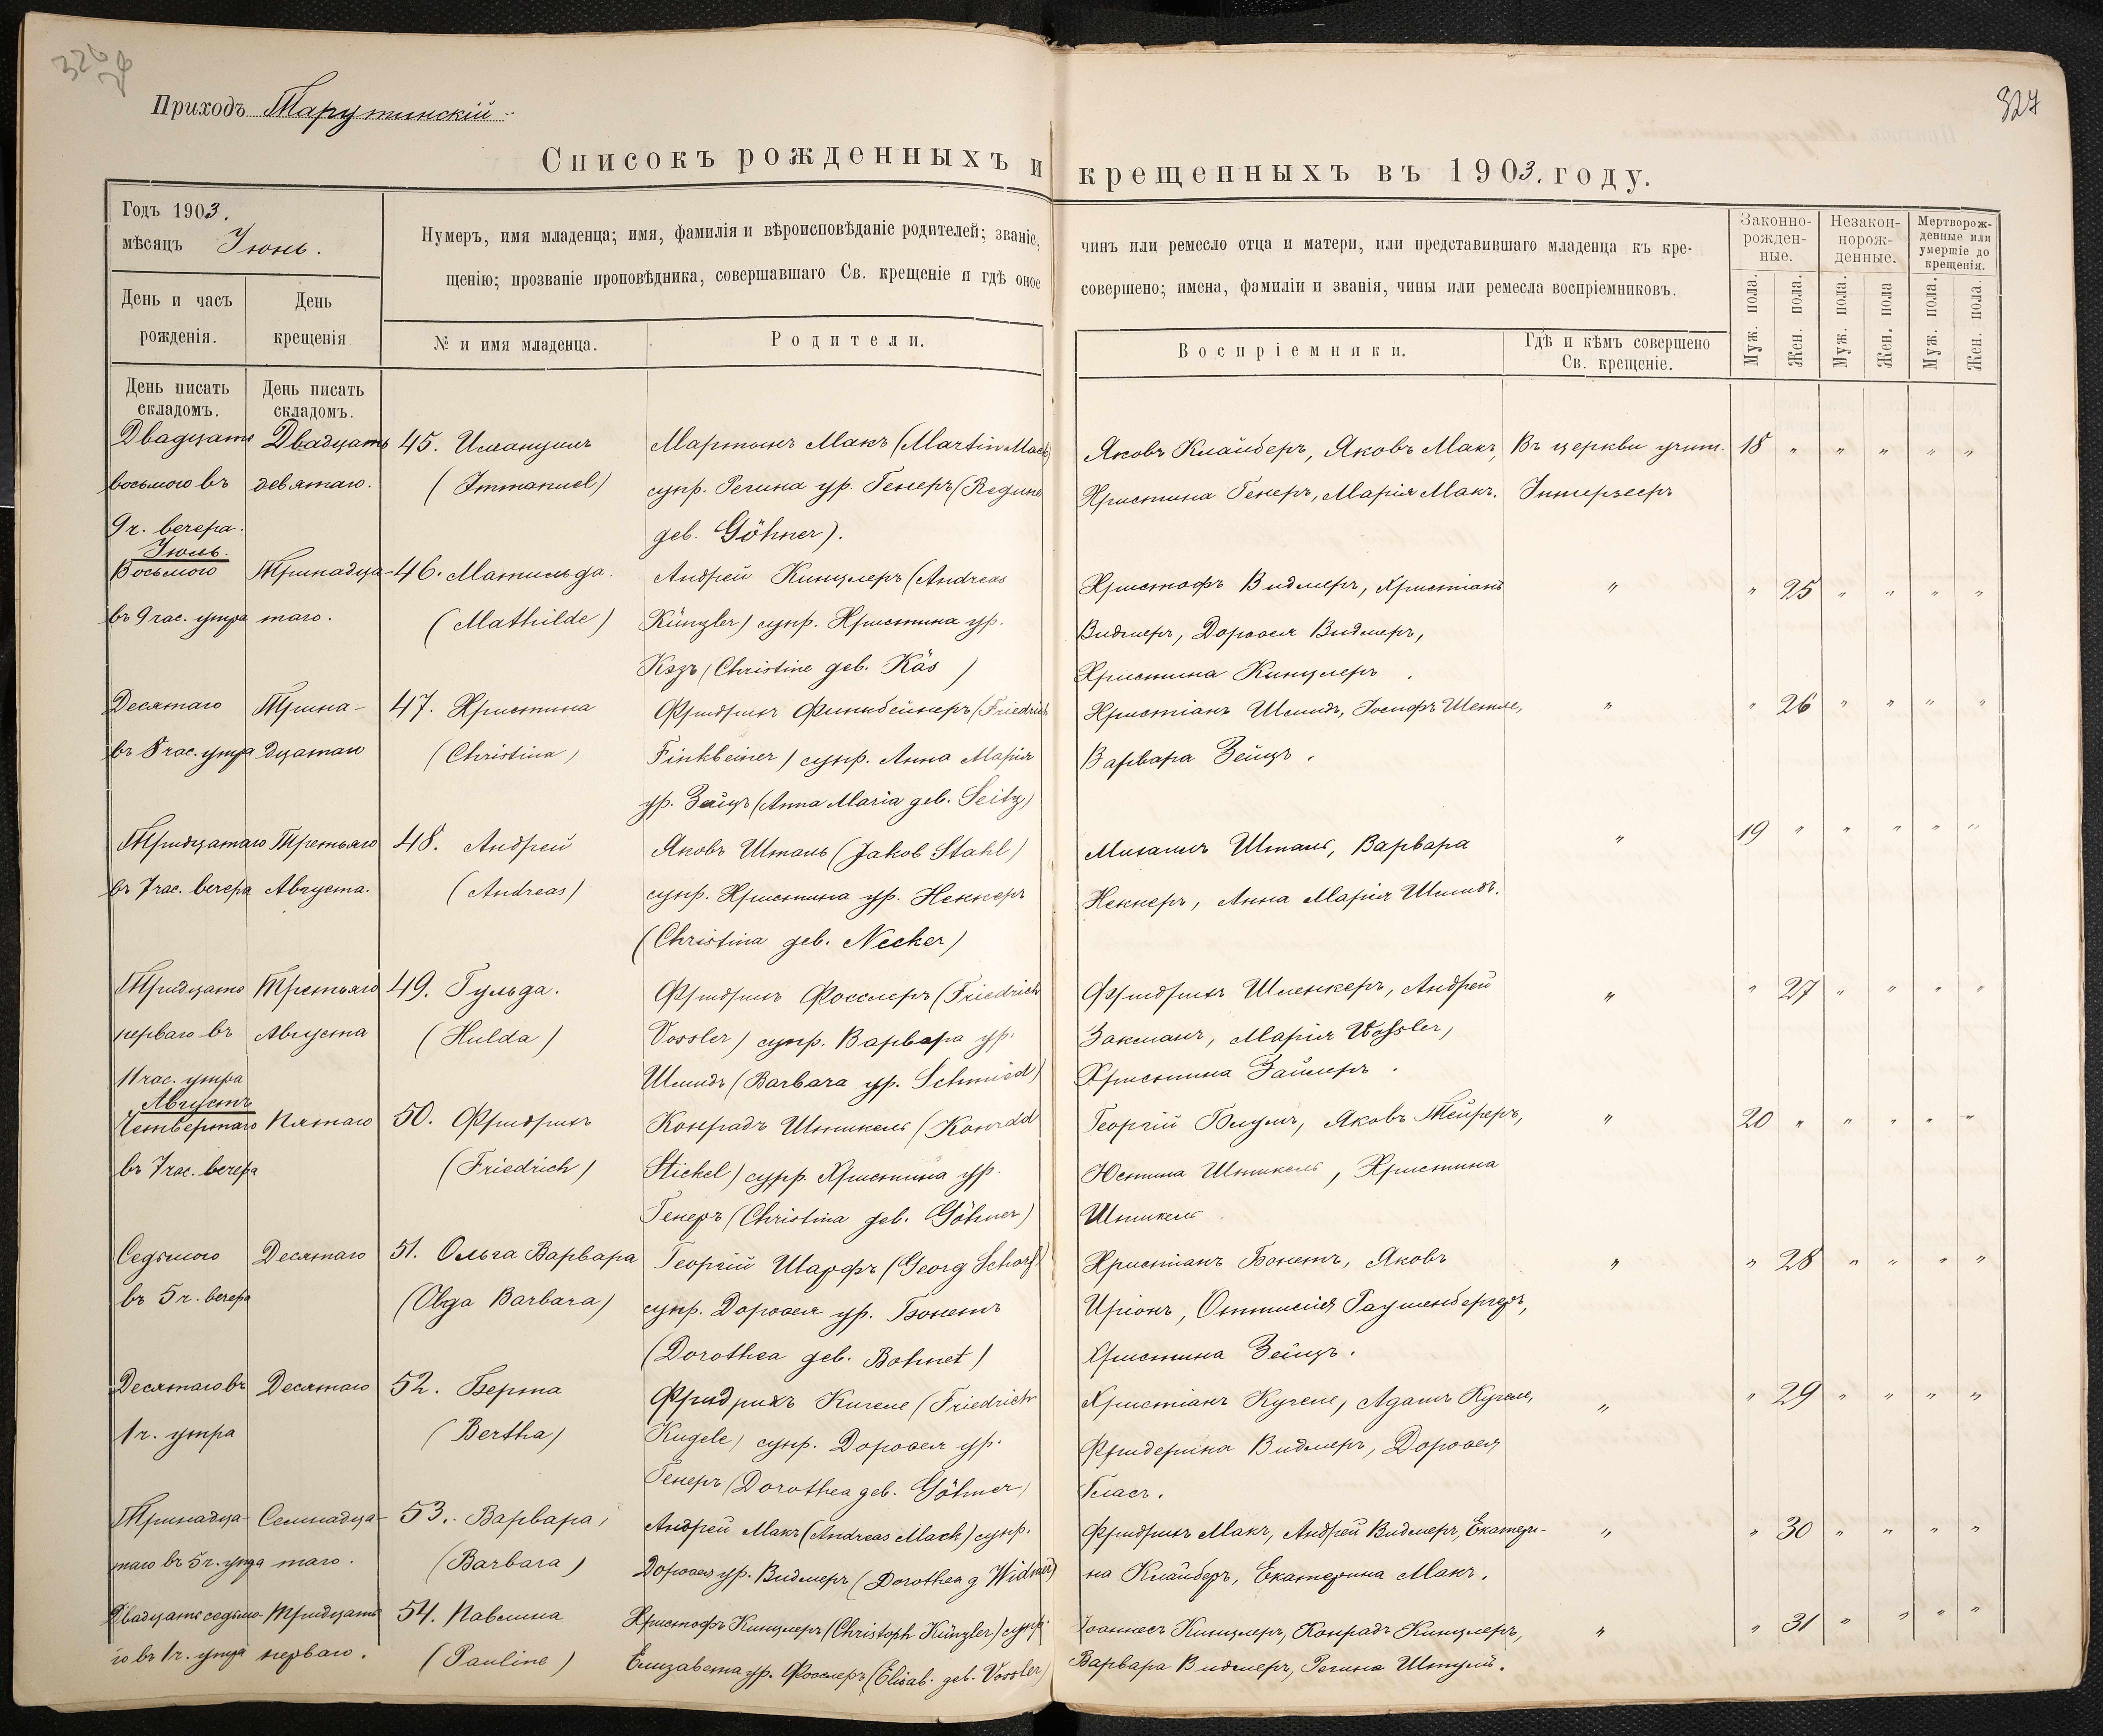 326
Приходъ Тарутинскій
327
Списокъ рожденныхъ и крещенныхъ въ 1903. году.
Годъ 1903.
мѣсяцъ Іюнь.
Нумеръ, имя младенца; имя, фамилія и вѣроисповѣданіе родителей; званіе, чинъ или ремесло отца и матери, или представившаго младенца къ кре-
щенію; прозваніе проповѣдника, совершавшаго Св. крещеніе и гдѣ оное совершено; имена, фамиліи и званія, чины или ремесла воспріемниковъ.
Законно-
рожден-
ные.
Незакон-
норож-
денные.
Мертворож-
денные или
умершіе до
крещенія.
День и часъ
рожденія.
День
крещенія
№ и имя младенца.
Родители.
Воспріемники.
Гдѣ и кѣмъ совершено
Св. крещеніе.
Муж. пола.
Жен. пола.
Муж. пола.
Жен. пола
Муж. пола.
Жен. пола.
День писать
складомъ.
День писать
складомъ.
Двадцать
восьмого въ
9 ч. вечера.
Двадцать
девятаго.
45. Имануилъ
(Immanuel)
Мартынъ Макъ (Martin Mack)
супр. Регина ур. Генеръ (Regine
geb. Göhner).
Яковъ Клайберъ, Яковъ Макъ,
Христина Генеръ, Марія Макъ.
Въ церкви учит.
18 " " " " "
Іюль.
Восьмого
въ 9 час. утра
Тринадца-
таго.
46. Матильда.
(Mathilde)
Андрей Кинцлеръ (Andreas
Künzler) супр. Христина ур.
Кэзъ (Christine geb. Käs)
Христофъ Видмеръ, Христіанъ
Видмеръ, Доровея Видмеръ,
Христина Кинцлеръ.
"
" 25 " " " "
Десятаго
въ 8 час. утра
Трина-
дцатаго
47. Христина
(Christina)
Фридрихъ Финкбейнеръ (Friedrich
Finkbeiner) супр. Анна Марія
ур. Зейцъ (Anna Maria geb. Seitz)
Христіанъ Шмидъ, Іосифъ
Варвара Зейцъ.
"
" 26 " " " "
Тридцатаго
въ 7 час. вечера
Третьяго
Августа.
48. Андрей
(Andreas)
Яковъ Шталь (Jakob Stahl)
супр. Христина ур. Неккеръ
(Christina geb. Necker)
Михаилъ Шталь, Варвара
Неккеръ, Анна Марія Шмидъ.
"
19 " " " " "
Тридцать
перваго въ
11 час. утра
Третьяго
Августа
49. Гульда.
(Hulda)
Фридрихъ Фосслеръ (Friedrich
Vossler) супр. Варвара ур.
Шмидъ (Barbara ур. Schmied)
Фридрихъ Шленкеръ, Андрей
Закманъ, Марія Vossler,
Христина Займеръ.
"
" 27 " " " "
Августъ
Четвертаго
въ 7 час. вечера
Пятаго
50. Фридрихъ
(Friedrich)
Конрадъ Штикель (Konradd
Stickel) супр. Христина ур.
Генеръ (Christina geb. Göhner)
Георгій Блумъ, Яковъ Тейреръ,
Юстина Штикель, Христина
Штикель
"
20 " " " " "
Седьмого
въ 5 ч. вечера
Десятаго
51. Ольга Варвара
(Olga Barbara)
Георгій Шарфъ (Georg Scharf)
супр. Доровея ур. Бонетъ
(Dorothea geb. Bohnet)
Христіанъ Бонетъ, Яковъ
Иріонъ, Оттилія Раушенбергеръ,
Христина Зейцъ.
"
" 28 " " " "
Десятаго въ
1 ч. утра
Десятаго
52. Берта
(Bertha)
Фридрихъ Кигеле (Friedrich
Kugele) супр. Доровея ур.
Генеръ (Dorothea geb. Göhner)
Христіанъ Кугеле, Адамъ Кугеле,
Фридерика Видмеръ, Доровея
Гласъ.
"
" 29 " " " "
Тринадца-
таго въ 5 ч. утра
Семнадца-
таго.
53. Варвара,
(Barbara)
Андрей Макъ (Andreas Mack) супр.
Доровея ур. Видмеръ (Dorothea g Widmer)
Фридрихъ Макъ, Андрей Видмеръ, Екатери-
на Клайберъ, Екатерина Макъ.
"
" 30 " " " "
Двадцать седьмо-
го въ 1 ч. утра
Тридцать
перваго.
54. Павлина
(Pauline)
Христофъ Кинцлеръ (Christoph Künzler) супр.
Елизавета ур. Фосслеръ (Elisab. geb. Vossler)
Іоаннесъ Кинцлеръ, Конрадъ Кинцлеръ,
Варвара Видмеръ, Регина
"
" 31 " " " "